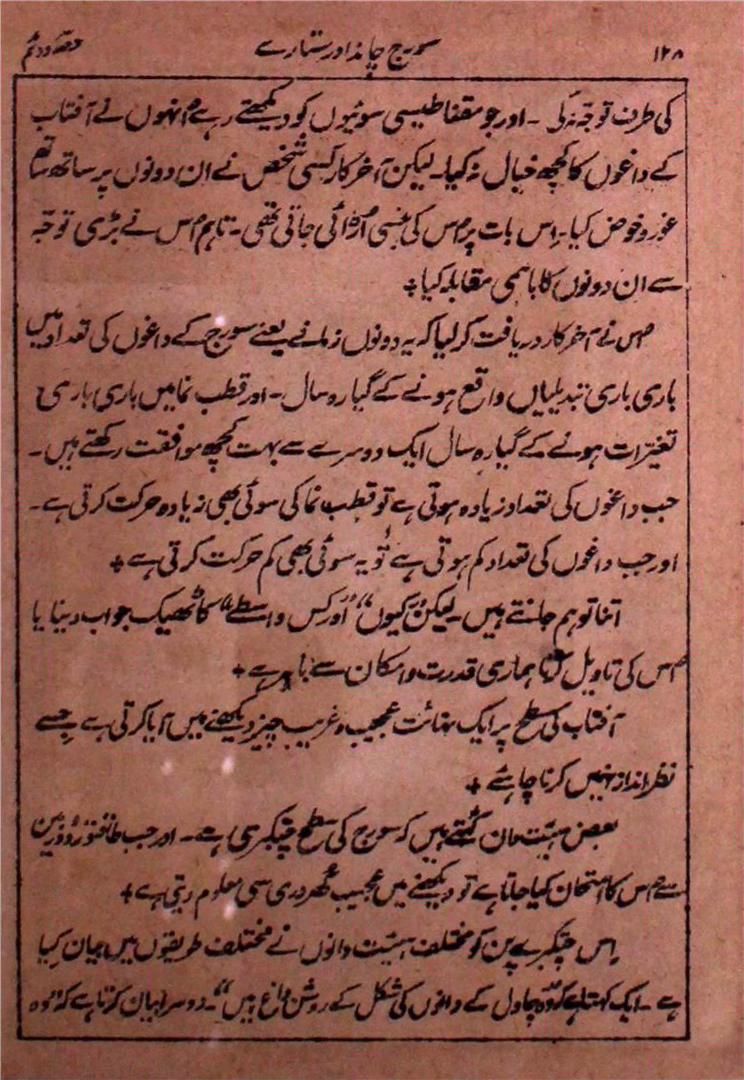 ۱۲۸ سورج چاند اور ستارے حصہ دوئم
کی طرف توجہ نہ کی ۔ اور جو مقناطیسی سوئیوں کو دیکھتے رہے اُنہوں نے آفتاب
کے داغوں کا کچھ خیال نہ کیا۔ لیکن آخر کار کسی شخص نے ان دونوں پر ساتھ ساتھ
غور و خوض کیا۔ اِس بات پر اُس کی ہنسی اُڑائی جاتی تھی۔ تاہم اُس نے بڑی توجہ
سے ان دونوں کا باہمی مقابلہ کیا +
اُس نے آخر کار دریافت کر لیا کہ یہ دونوں زمانے یعنے سورج کے داغوں کی تعداد میں
باری باری تبدیلیاں واقع ہونے کے گیارہ سال ۔ اور قطب نما میں باری باری
تغیّرات ہونے کے گیارہ سال ایک دوسرے سے بہت کچھ موافقت رکھتے ہیں۔
جب داغوں کی تعداد زیادہ ہوتی ہے تو قطب نما کی سوئی بھی زیادہ حرکت کرتی ہے۔
اور جب داغوں کی تعداد کم ہوتی ہے تو یہ سوئی بھی کم حرکت کرتی ہے +
اتنا تو ہم جانتے ہیں۔ لیکن ”کیوں“ اور ”کس واسطے“ کا ٹھیک جواب دینا یا
اُس کی تاویل کرنا ہماری قدرت و امکان سے باہر ہے +
آفتاب کی سطح پر ایک نہائت عجیب و غریب چیز دیکھنے میں آیا کرتی ہے جسے
نظر انداز نہیں کرنا چاہئے +
بعض ہیئت دان کہتے ہیں کہ سورج کی سطح چتکبری ہے۔ اور جب طاقتور دُوربین
سے اُس کا امتحان کیا جاتا ہے تو دیکھنے میں عجیب کھُردری سی معلوم دیتی ہے +
اِس چتکبرے پن کو مختلف ہیئت دانوں نے مختلف طریقوں میں بیان کیا
ہے ۔ ایک کہتا ہے کہ ”وہ چاول کے دانوں کی شکل کے روشن داغ ہیں“۔ دوسرا بیان کرتا ہے کہ ”وہ